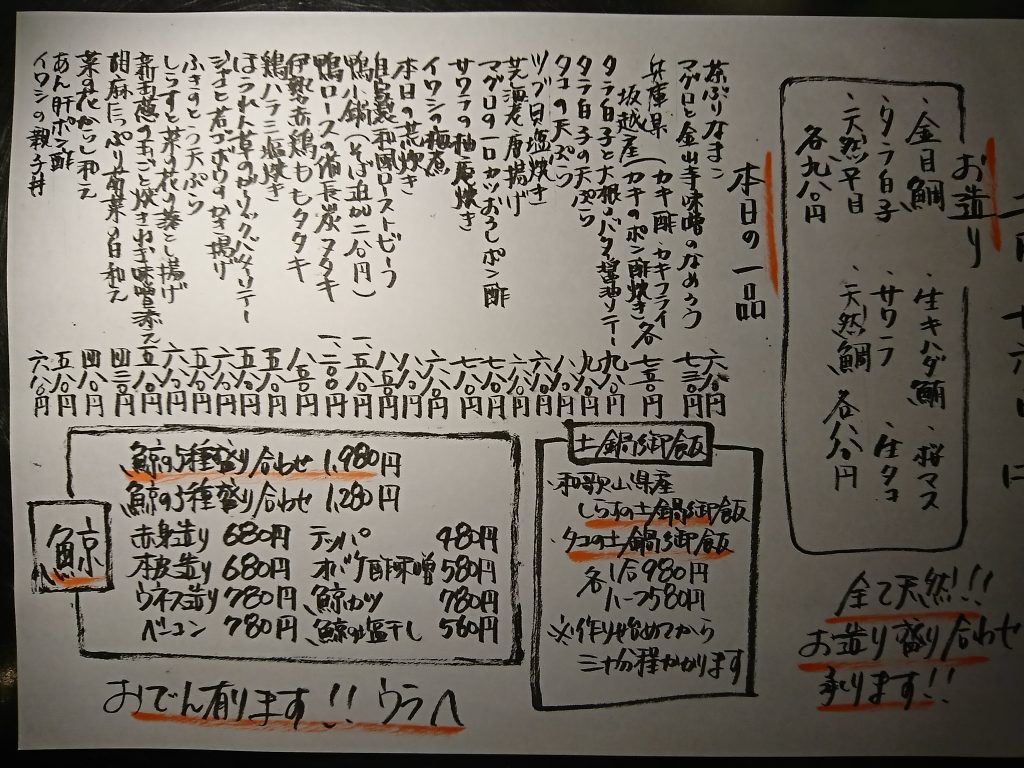 お造り
・金目鯛
・タラ白子
・天然平目
各九八〇円
・生キハダ鮪
・桜マス
・サワラ
・生タコ
・天然鯛
各八八〇円
全て天然!!
お造り盛り合わせ
承ります!!
本日の一品
茶ぶりなまこ 六八〇円
マグロと金山寺味噌のなめろう 七三〇円
兵庫県坂越産(カキ酢・カキフライ カキのポン酢炊き)各 七五〇円
タラ白子と大根のバタ醤油ソテー 九八〇円
タラ白子の天ぷら 九八〇円
タコの天ぷら
ツブ貝塩炊き
芝海老唐揚げ
マグロの一口カツおろしポン酢
サワラの柚庵焼き
イワシの梅煮
本日の荒炊き
自家製和風ローストビーフ
鴨小鍋(そば追加二八〇円)
鴨ロースの備長炭タタキ
伊勢赤鶏ももタタキ
鶏ハラミ塩焼き
ほうれん草のガーリックバターソテー
ジャコと若ゴボウのかき揚げ
ふきのとう天ぷら
しらすと菜の花の落とし揚げ
新玉葱の玉ごと炊きねぎ味噌添え
胡麻たっぷり菊菜の白和え
菜の花からし和え
あん肝ポン酢 五八〇円
イワシの親子丼 六八〇円
土鍋御飯
・和歌山県産
しらすの土鍋御飯
・タコの土鍋御飯
各 1合980円
ハーフ580円
※作り始めてから
三十分程かかります
鯨
鯨の5種盛り合わせ 1,980円
鯨の3種盛り合わせ 1,280円
赤身造り 680円 テッパ 480円
本皮造り 680円 オバケ酢味噌 580円
ウネス造り 780円 鯨カツ 780円
ベーコン 780円 鯨の塩干し 560円
おでん有ります!! ウラへ